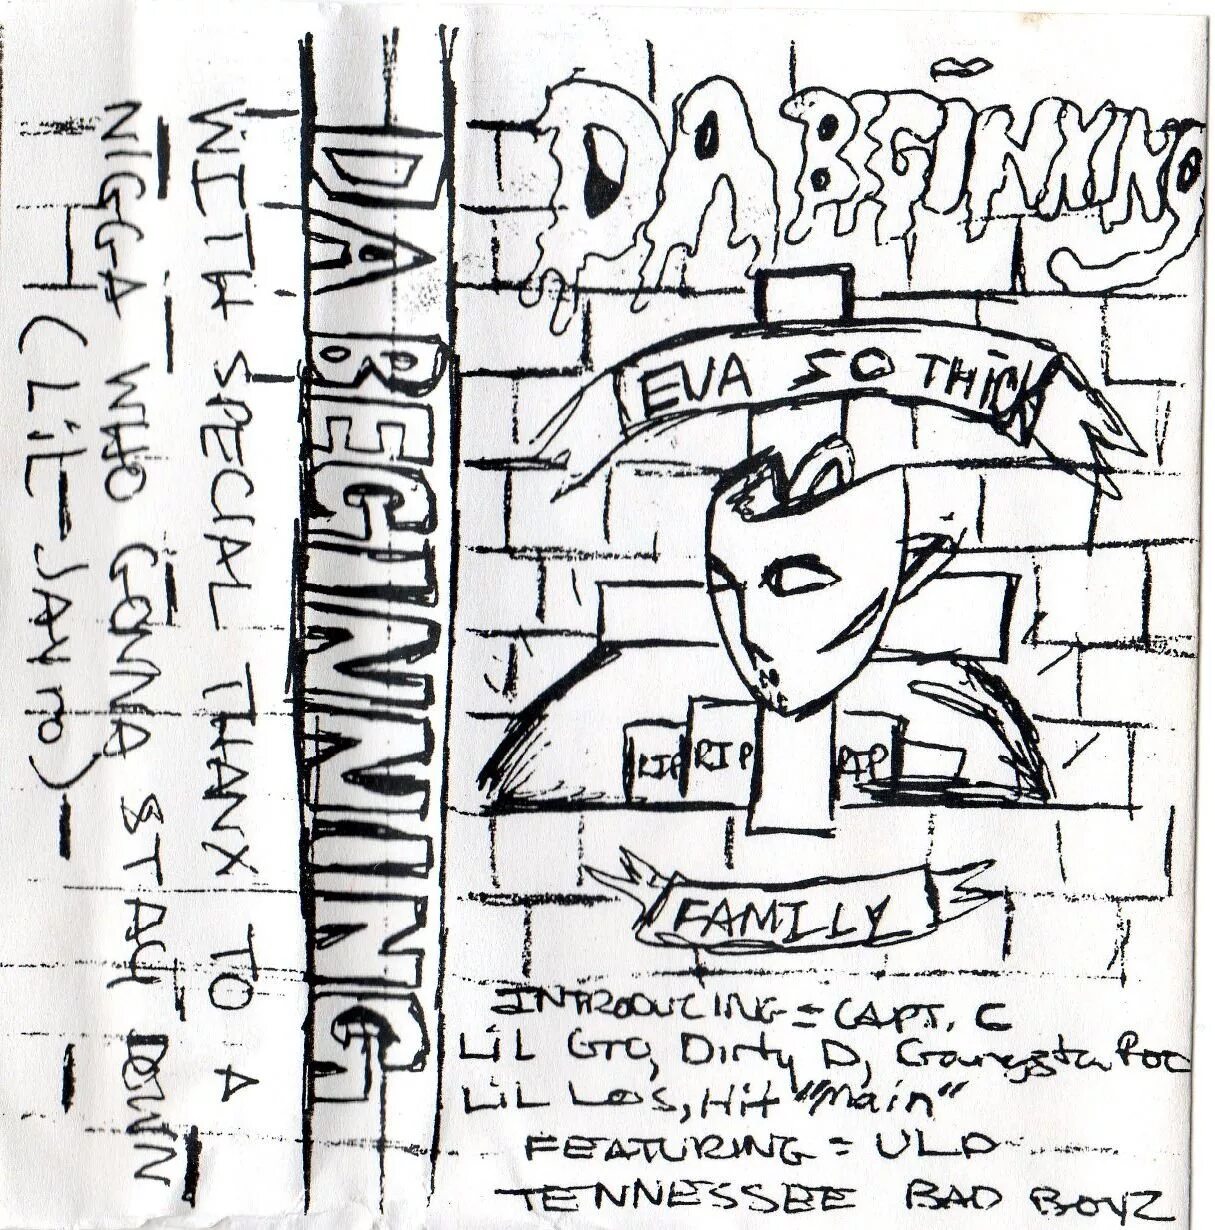 WITH SPECIAL THANX TO A
NIGGA WHO GONNA STAY DOWN
(LIL-JAYRO)
DA BEGINNING
DA BEGINNING
EVA SO THICK
RIP
RIP
RIP
FAMILY
INTRODUCING = CAPT. C
LiL GTO, Dirty D, Gangsta Poo
LiL Los, Hit "Main"
FEATURING = ULD
TENNESSEE BAD BOYZ